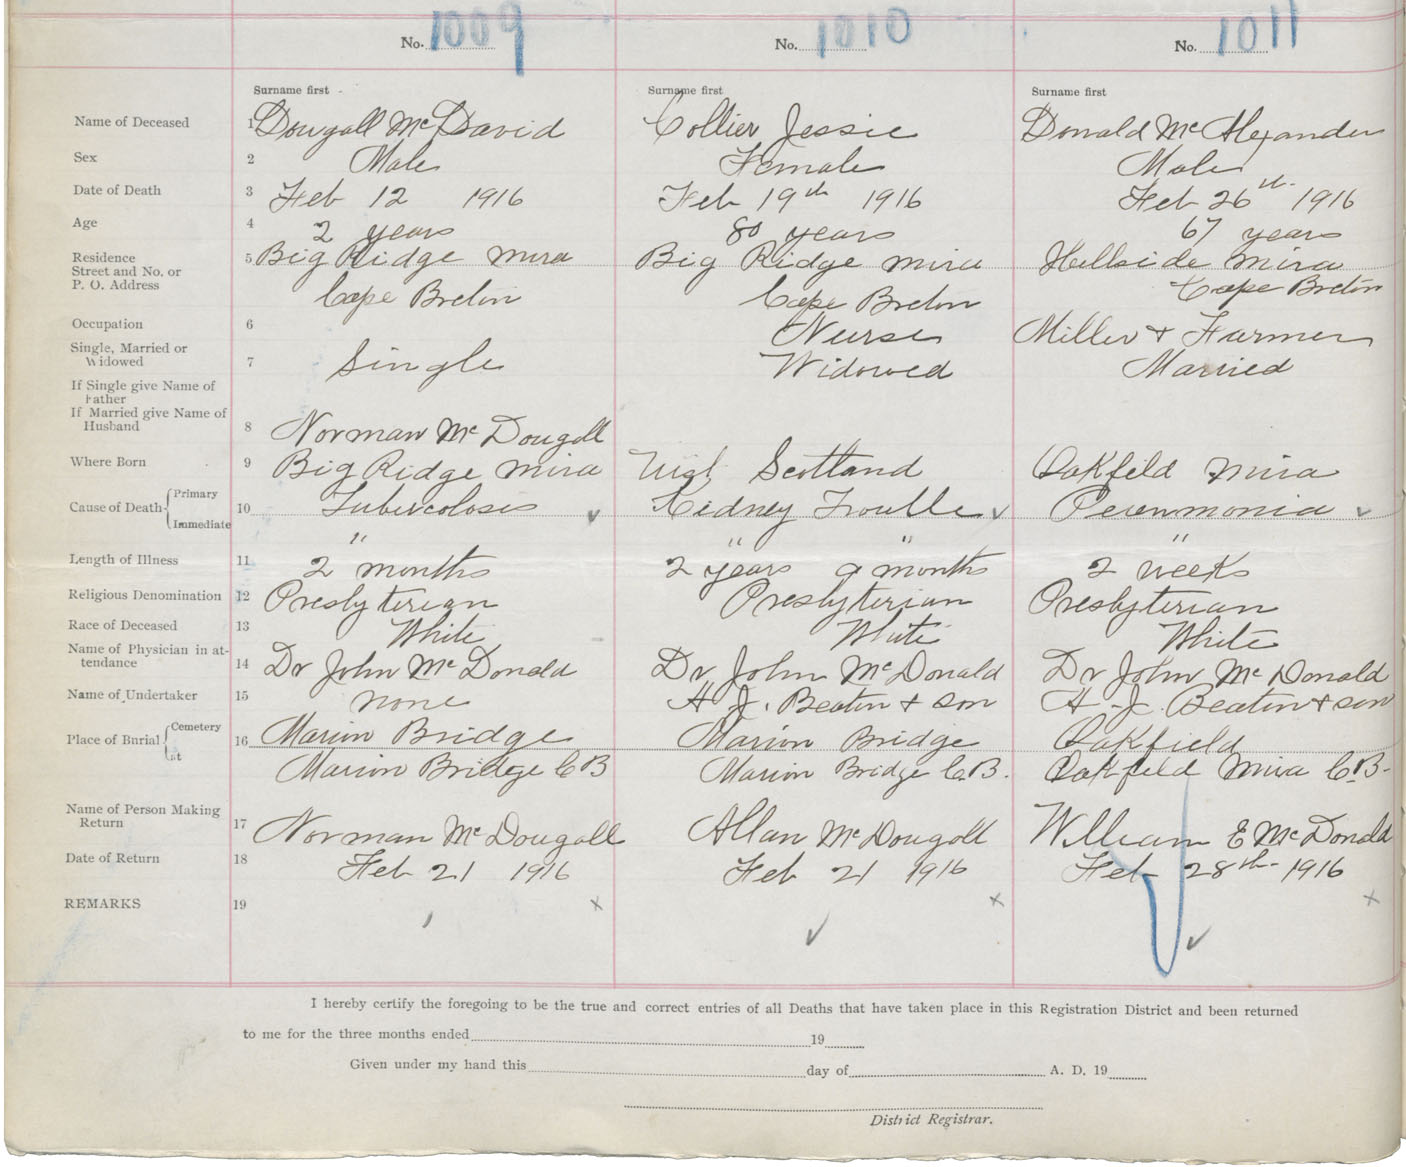 No. 1009 No. 1010 No. 1011
Surname first Surname first Surname first
Name of Deceased 1 Dougall Mc David Collier Jessie Donald Mc Alexander
Sex 2 Male Female Male
Date of Death 3 Feb 12 1916 Feb 19th 1916 Feb 26th 1916
Age 4 2 years 80 years 67 years
Residence 5 Big Ridge Mira Big Ridge Mira Hillside Mira
Street and No. or
P. O. Address Cape Breton Cape Breton Cape Breton
Occupation 6 Nurse Miller + Farmer
Single, Married or
Widowed 7 Single Widowed Married
If Single give Name of
Father
If Married give Name of
Husband 8 Norman Mc Dougall
Where Born 9 Big Ridge Mira Uigt Scotland Oakfield Mira
Cause of Death { Primary
Immediate 10 Tubercolosis Kidney Trouble Penenmonia
" " " "
Length of Illness 11 2 months 2 years 9 months 2 weeks
Religious Denomination 12 Presbyterian Presbyterian Presbyterian
Race of Deceased 13 White White White
Name of Physician in at-
tendance 14 Dr John Mc Donald Dr John Mc Donald Dr John Mc Donald
Name of Undertaker 15 none H J. Beaton + son H. J. Beaton + son
Place of Burial { Cemetery 16 Marion Bridge Marion Bridge Oakfield
at Marion Bridge C B Marion Bridge C.B. Oakfield Mira C.B.
Name of Person Making
Return 17 Norman Mc Dougall Allan Mc Dougall William E Mc Donald
Date of Return 18 Feb 21 1916 Feb 21 1916 Feb 28th 1916
REMARKS 19
I hereby certify the foregoing to be the true and correct entries of all Deaths that have taken place in this Registration District and been returned
to me for the three months ended 19
Given under my hand this day of A. D. 19
District Registrar.